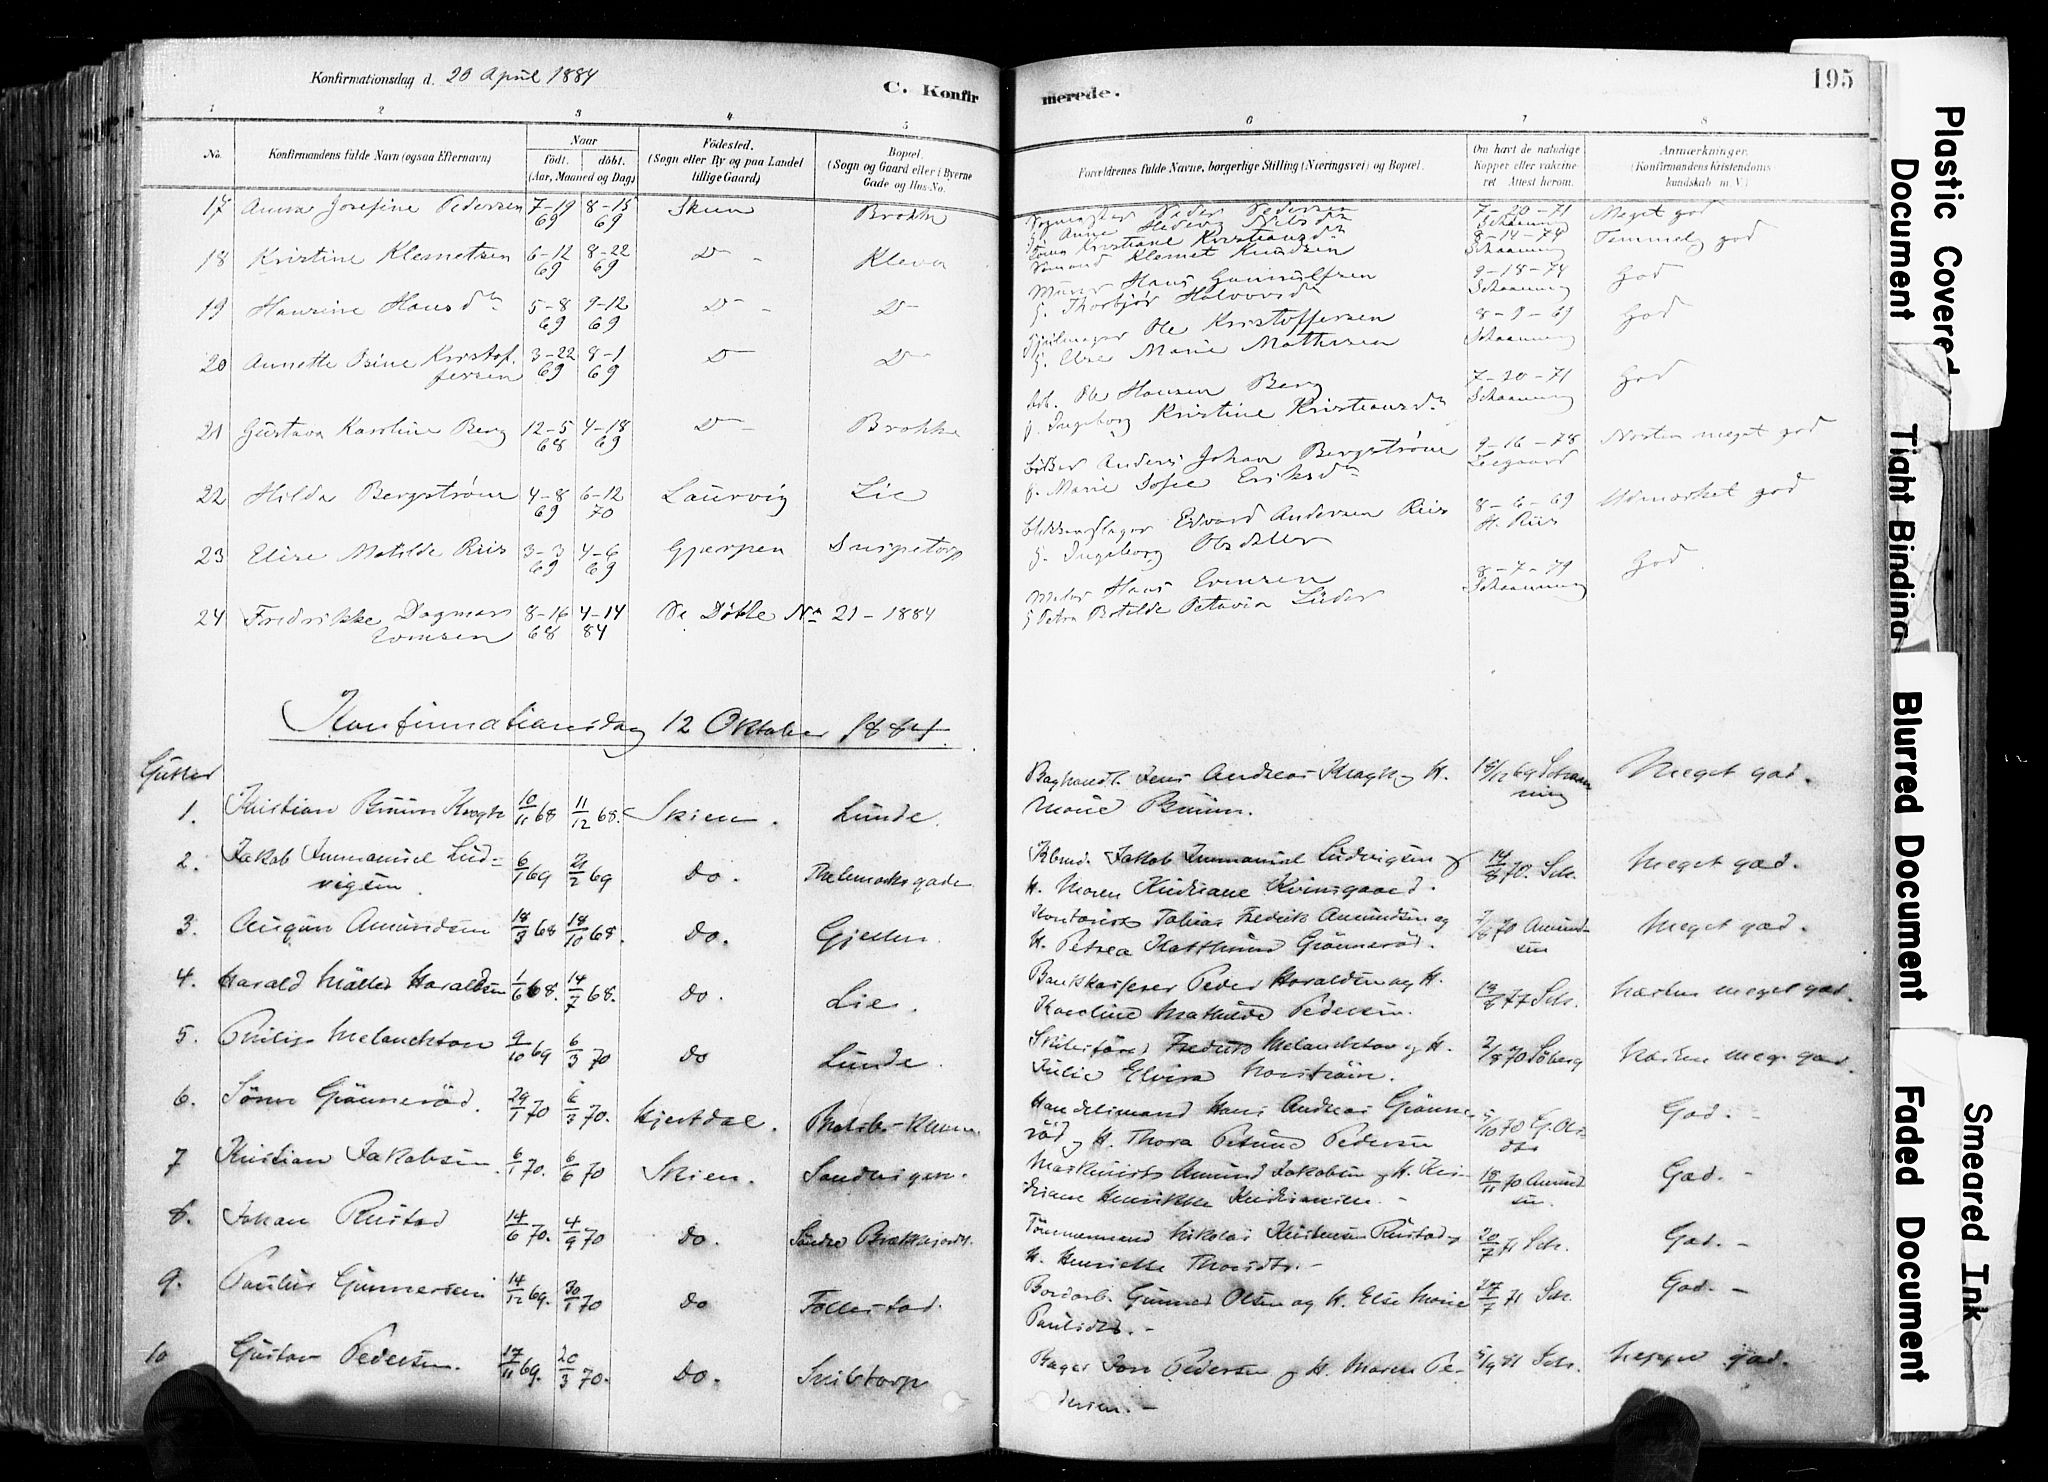 Konfirmationsdag d. 20 April 1884
C. Konfirmerede.
195
1 2 3 4 5 6 7 8
No.
Konfirmandens fulde Navn (ogsaa Efternavn)
Naar
født. døbt.
(Aar, Maaned og Dag)
Fødested.
(Sogn eller By og paa Landet
tillige Gaard)
Bopæl.
(Sogn og Gaard eller i Byerne
Gade og Hus-No.
Forældrenes fulde Navne, borgerlige Stilling (Næringsvei) og Bopæl.
Om havt de naturlige
Kopper eller vaksine-
ret Attest herom.
Anmærkninger.
(Konfirmandens Kristendoms-
kundskab m. V.)
17 Anna Josefine Pedersen 7-19 69 8-15 69 Skien Brokke
Peder Pedersen
Anne Hedevig Nilsdtr
7-20-71
Schaanning
Meget god
18 Kristine Klemetsen 6-12 69 8-22 69 D- Kleva
Kristiane Kristiansdtr
Sømand Klemet Knudsen
8-14-74
Schaanning
Temmelig god
19 Hansine Hansdtr 5-8 69 9-12 69 D- D-
Murer Hans Gunnulfsen
H. Thorbjør Halvorsdtr
9-18-74
Schaanning
God
20 Annette Osine Kristof-
fersen 3-22 69 8-1 69 D- D-
Ole Kristoffersen
H. Else Marie Mathisen
8-9-69
Schaanning
God
21 Gustava Karoline Berg 12-5 68 4-18 69 D- Brokke
Arb. Ole Hansen Berg
H. Ingeborg Kristine Kristiansdtr
7-20-71
Schaanning
God
22 Hilda Bergstrøm 4-8 69 6-12 70 Laurvig Lie
Anders Johan Bergstrøm
H. Marie Sofie Eriksdtr
9-16-78
Næsten meget god
23 Elise Matilde Riis 3-3 69 4-6 69 Gjerpen Snipetorp
Blikkenslager Edvard Andersen Riis
H. Ingeborg Olsdatter
8-6-69
H. Riis
Udmærket god
24 Fredrikke Dagmar
Evensen 8-16 68 4-14 84 Se Døbte No 21-1884
Maler Hans Evensen
H. Petra Botilde Oktavia Lüder
8-7-79
Schaanning
God
Konfirmationsdag 12 Oktober 1884.
Gutter
1. Kristian Bruun Krogh 10/11 68 11/12 68. Skien. Lunde.
Boghandl. Jens Andreas Krogh og H.
Marie Bruun.
18/12 69 Schaan-
ning
Meget god.
2. Jakob Immanuel Lud-
vigsen. 6/1 69 21/2 69 Do. Thelemarksgade
Jakob Immanuel Ludvigsen og
H. Maren Kristiane Kvinsgaard.
14/8 70. Sch.
Meget god.
3. August Amundsen 18/3 68 18/10 68. Do. Gjelten.
Kontorist Tobias Fredrik Amundsen og
H. Petrea Grønnerød.
7/8 70 Amund-
sen
Meget god.
4. Harald Møller Haraldsen 1/6 68. 14/7 68. Do. Lie.
Bankkasserer Peder Haraldsen og H.
Karoline Mathilde Pedersen.
13/8 77 Sch.
Næsten meget god.
5. Philip Melanchton 9/10 69 6/3 70 Do Lunde.
Fredrik Melanchton og H.
Julie Elvira Norstrøm.
2/8 70 Søberg
Næsten meg. god.
6. Søren Grønnerød. 29/1 70 6/3 70. Hjertdal.
Handelsmand Hans Andreas Grønne-
rød og H. Thora Petrine Pedersen
5/10 70
God.-
7 Kristian Jakobsen. 6/1 70. 6/6 70 Skien. Sandvigen.
Maskinist Amund Jakobsen og H. Kri-
stiane Henrikke Kristiansen.-
18/11 70 Amund-
sen.
God.-
8. Johan Rustad 14/6 70. 4/9 70 Do. Søndre Brækkejordet.
Tømmermand Nikolai Kristensen Rustad og
H. Henriette Thorsdtr.-
20/7 71 Sch.
God.-
9. Paulus Gunnersen 14/12 69. 30/1 70 Do Follestad.
Bordarb. Gunner Olsen og H. Else Marie
Paulsdtr.-
27/7 71 Sch.
God.-
10 Gustav Pedersen. 17/11 69. 20/3 70. Do. Snibtorp
Bager Jon Pedersen og H. Maren Pe-
dersen.-
5/9 81 Sch.
Neppe god.
Plastic Covered Document
Tight Binding
Blurred Document
Faded Document
Smeared Ink